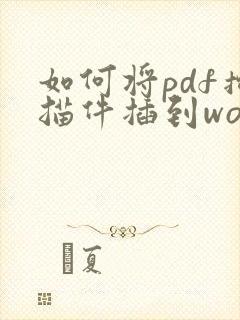 如何将pdf扫
描件插到wo
夏